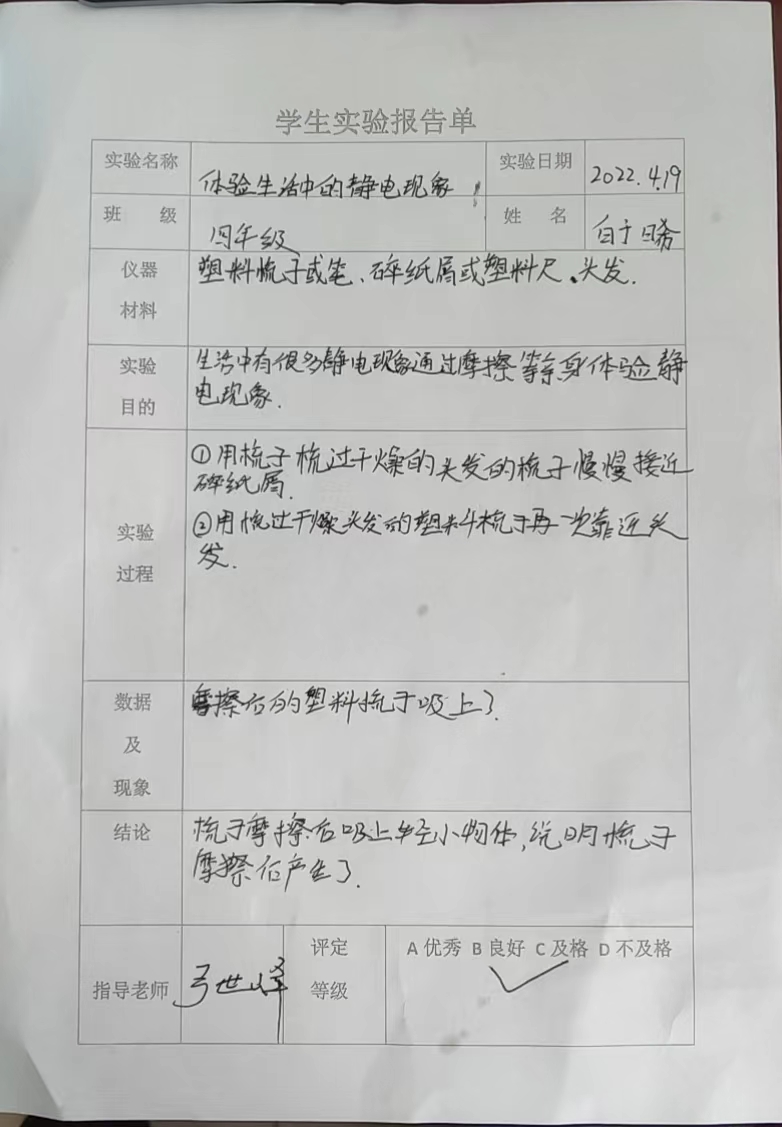 学生实验报告单
实验名称 体验生活中的静电现象 实验日期 2022.4.19
班 级 四年级 姓 名 白于
仪器 塑料梳子或笔、碎纸屑或塑料尺、头发.
材料
实验 生活中有很多静电现象通过摩擦等亲身体验静
目的 电现象.
①用梳子梳过干燥的头发的梳子慢慢接近
碎纸屑.
实验 ②用梳过干燥头发的塑料梳子再一次靠近头
过程 发.
数据 摩擦后的塑料梳子吸上了.
及
现象
结论 梳子摩擦后吸上轻小物体,说明梳子
摩擦后产生了.
指导老师 弓世峰 评定 A 优秀 B 良好 C 及格 D 不及格
等级